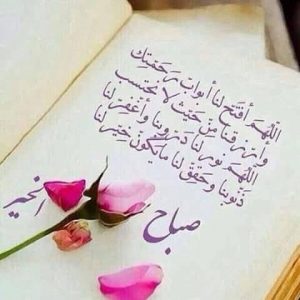 اللهم أفتح لنا أبواب رحمتك
وأرزقنا من حيث لا نحتسب
اللهم نور لنا دروبنا وأغفر لنا
ذنوبنا وحقق لنا مايكون خير لنا
صباح
الخير